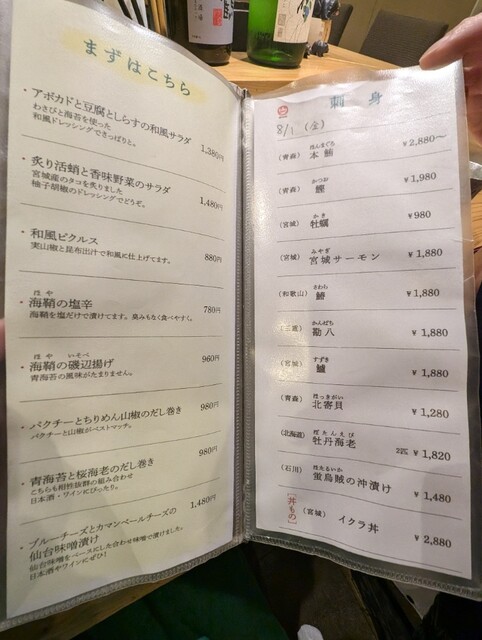 まずはこちら
・アボカドと豆腐としらすの和風サラダ 1,380円
わさびと海苔を使った
和風ドレッシングでさっぱりと。
・炙り活蛸と香味野菜のサラダ 1,480円
宮城産のタコを炙りました
柚子胡椒のドレッシングでどうぞ。
・和風ピクルス 880円
実山椒と昆布出汁で和風に仕上げてます。
ほや
・海鞘の塩辛 780円
海鞘を塩だけで漬けてます。臭みもなく食べやすく。
ほや いそべ
・海鞘の磯辺揚げ 960円
青海苔の風味がたまりません。
・パクチーとちりめん山椒のだし巻き 980円
パクチーと山椒がベストマッチ。
・青海苔と桜海老のだし巻き 980円
こちらも相性抜群の組み合わせ
日本酒・ワインにぴったり。
・ブルーチーズとカマンベールチーズの
仙台味噌漬け 1,480円
仙台味噌をベースにした合わせ味噌で漬けました。
日本酒やワインにぜひ!
刺身
8/1 (金)
ほんまぐろ
(青森) 本鮪 ¥2,880～
かつお
(青森) 鰹 ¥1,980
かき
(宮城) 牡蠣 ¥980
みやぎ
(宮城) 宮城サーモン ¥1,880
さわら
(和歌山) 鰆 ¥1,880
かんぱち
勘八 ¥1,880
すずき
(宮城) 鱸 ¥1,880
ほっきがい
(青森) 北寄貝 ¥1,280
ぼたんえび
(北海道) 牡丹海老 2匹 ¥1,820
ほたるいか
(石川) 蛍烏賊の沖漬け ¥1,480
[丼もの] (宮城) イクラ丼 ¥2,880